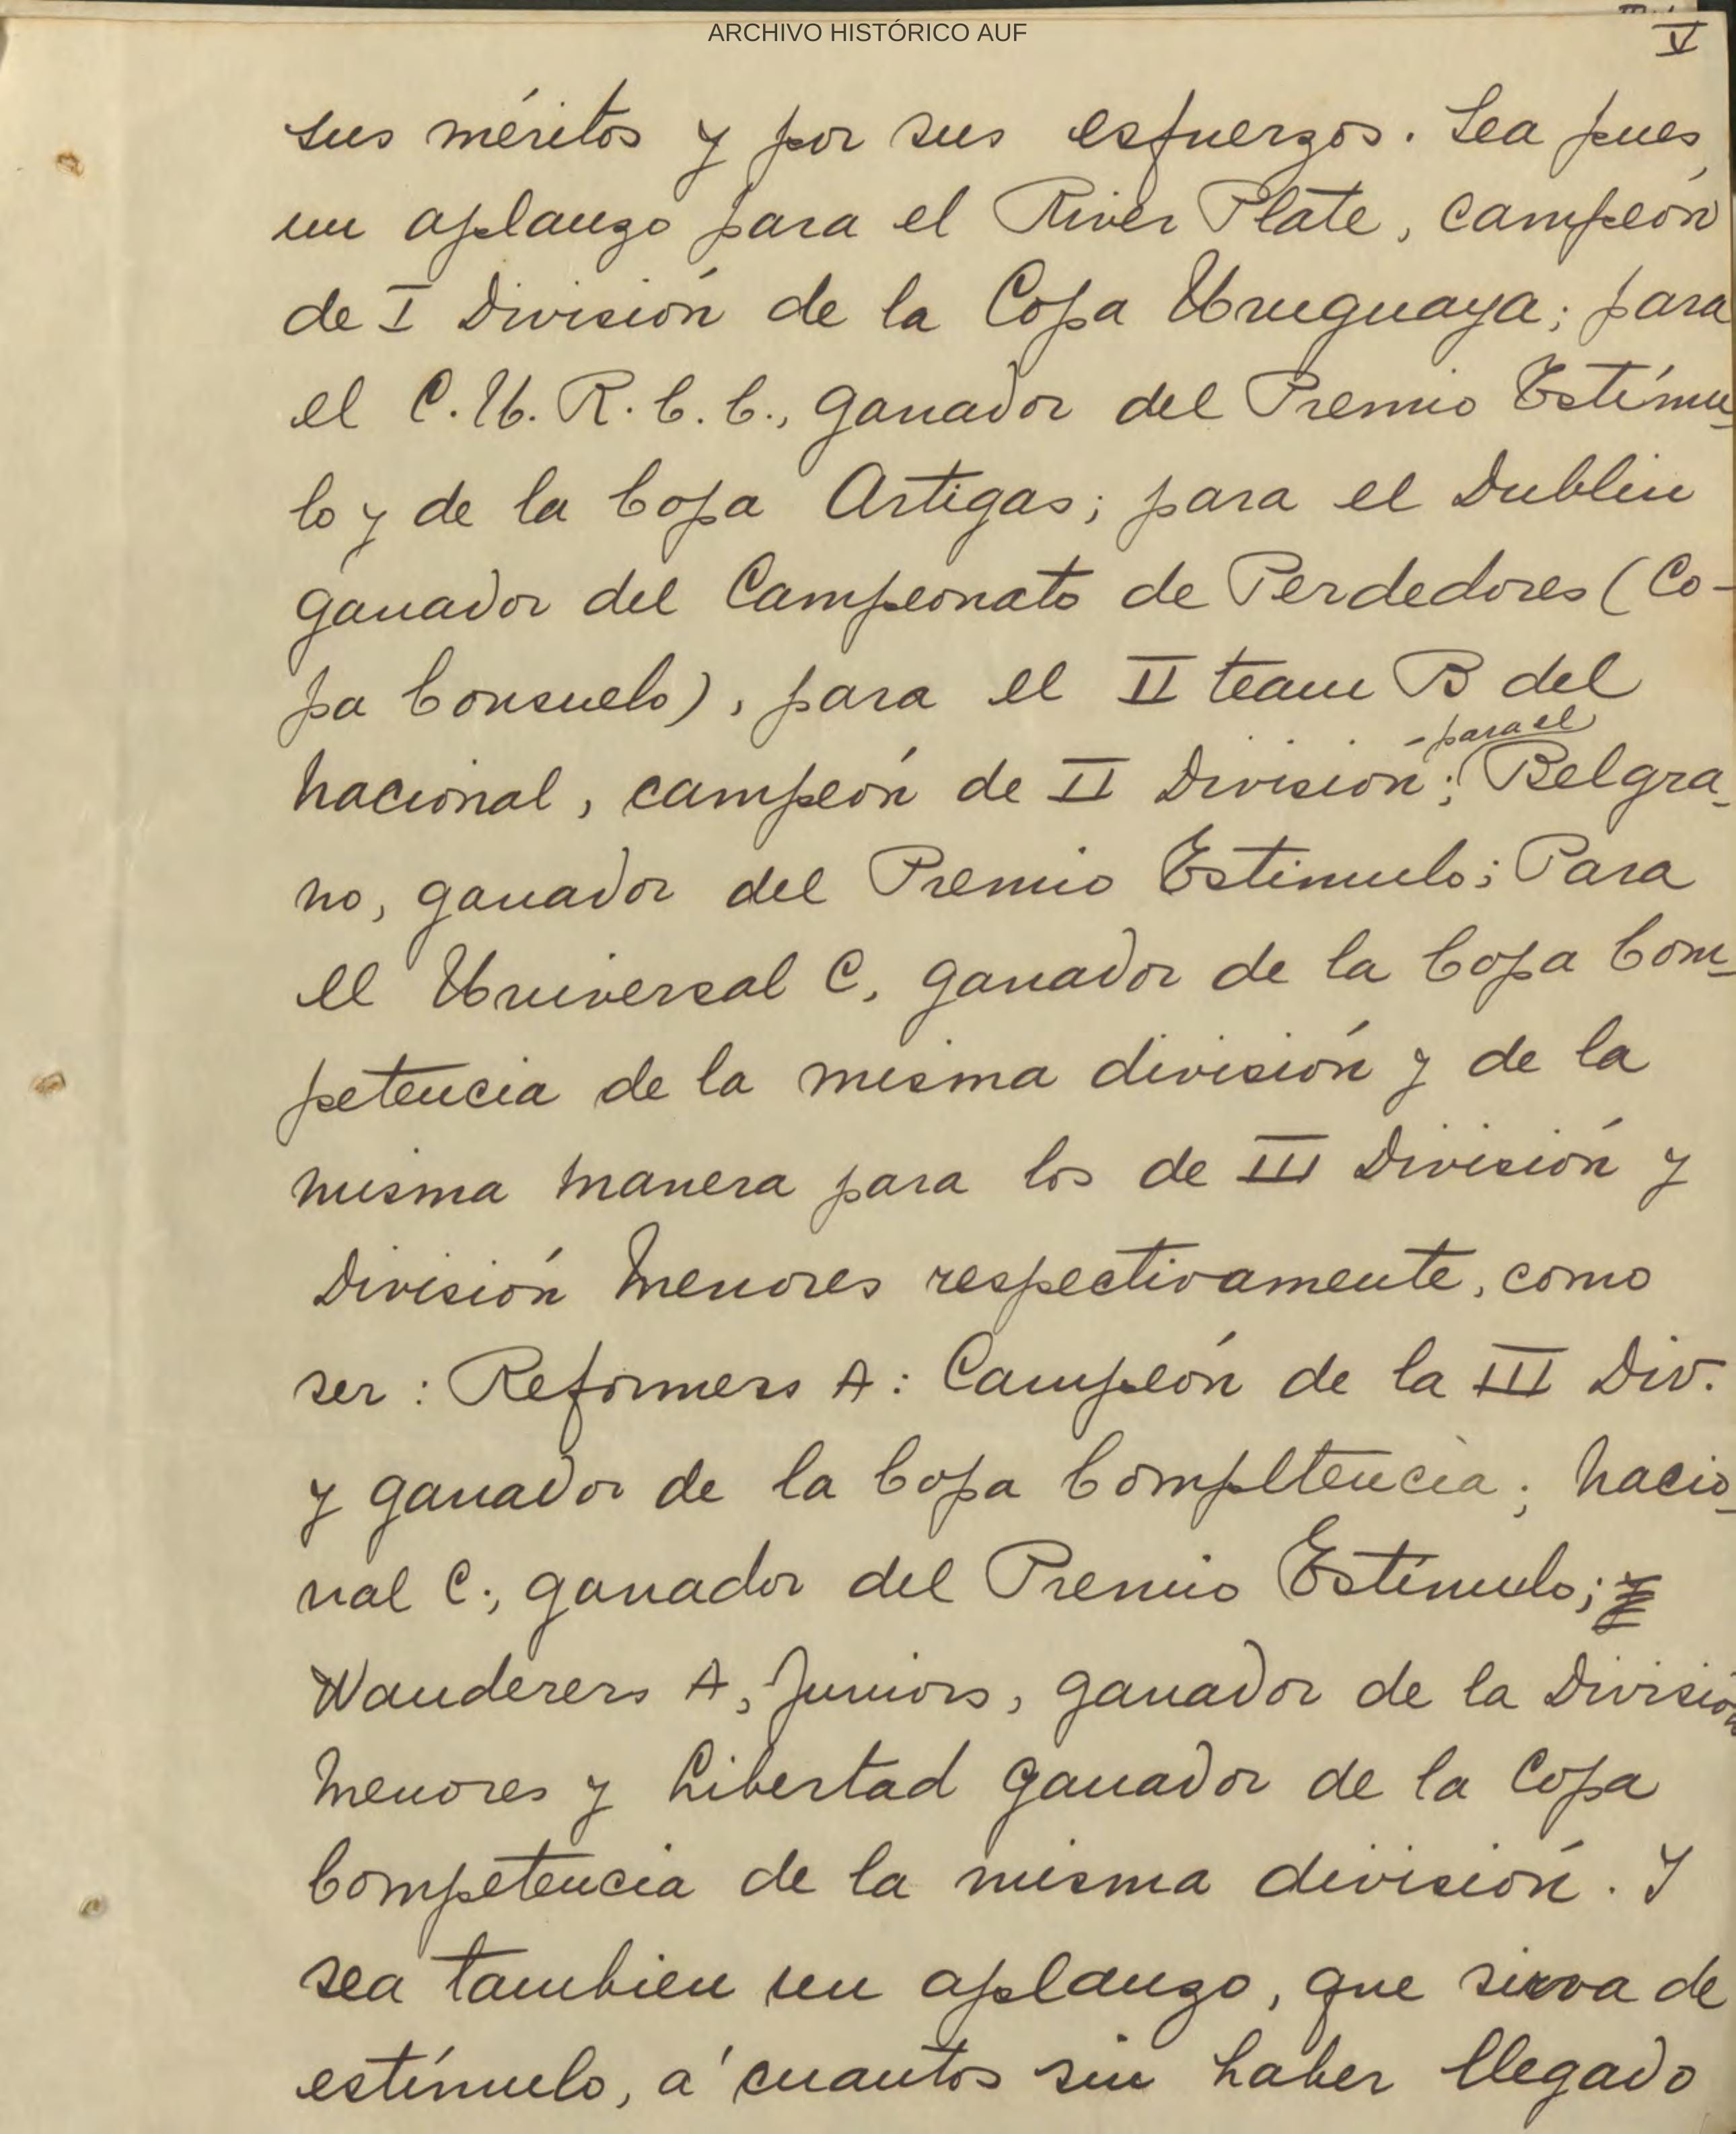 ARCHIVO HISTÓRICO AUF
V
sus méritos y por sus esfuerzos. Sea pues,
un aplauzo para el River Plate, campeón
de I División de la Copa Uruguaya; para
el C.U.R.C.C., ganador del Premio Estímu-
lo y de la Copa Artigas; para el Dublin
ganador del Campeonato de Perdedores (Co-
pa Consuelo), para el II team B del
- para el
Nacional, campeón de II División; Belgra-
no, ganador del Premio Estimulo; Para
el Universal C, ganador de la Copa Com-
petencia de la misma división y de la
misma manera para los de III División y
División Menores respectivamente, como
ser: Reformers A: Campeón de la III Div.
y ganador de la Copa Competencia; Nacio-
nal C; ganador del Premio Estímulo;
Wanderers A, Juniors, ganador de la División
Menores y Libertad ganador de la Copa
Competencia de la misma división. Y
sea tambien un aplauzo, que sirva de
estímulo, á cuantos sin haber llegado